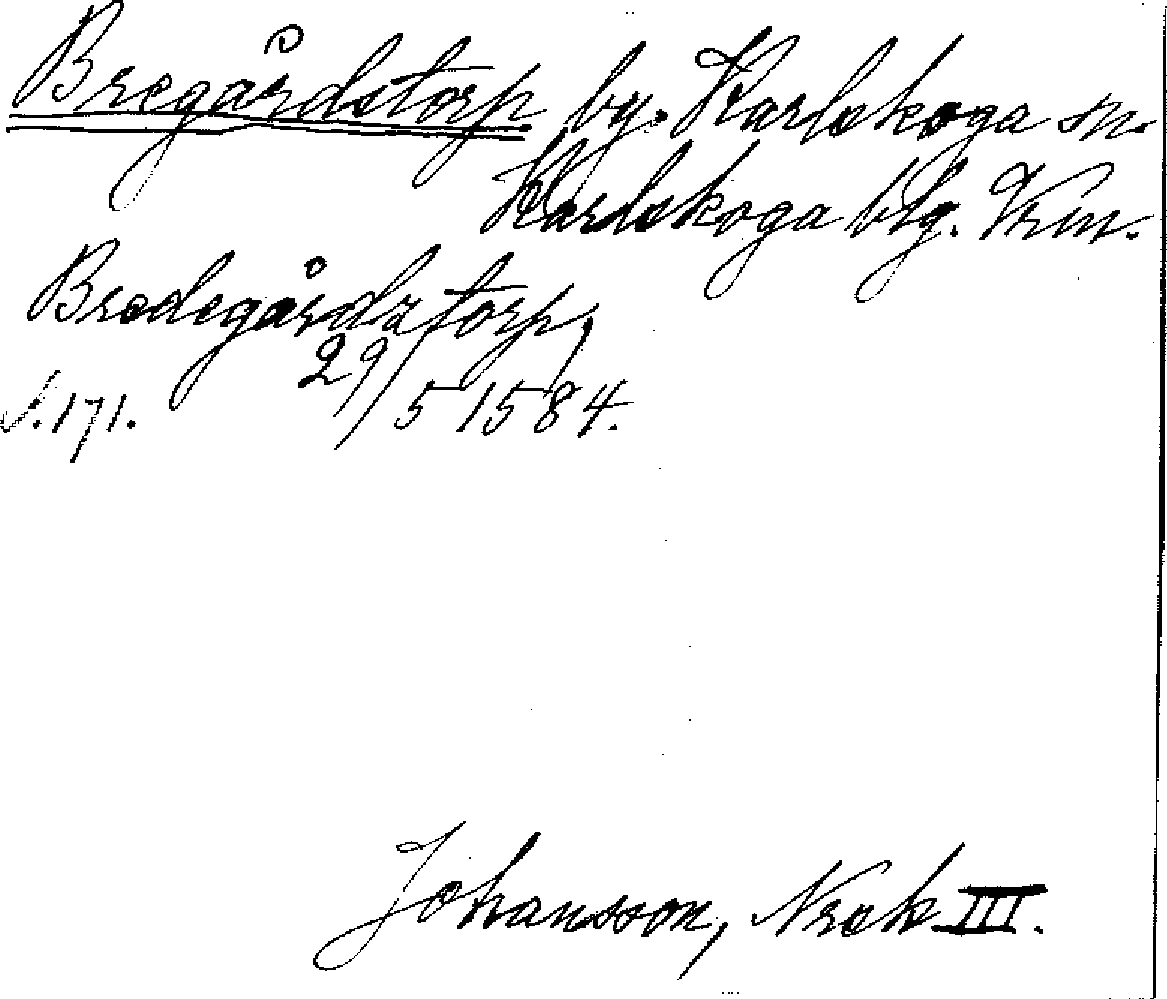 Bregårdstorp by. Karlskoga sn.
Karlskoga blg. Vrm.
Bredegårdztorp,
s. 171. 29/5 1584.
Johansson, Nrck III.